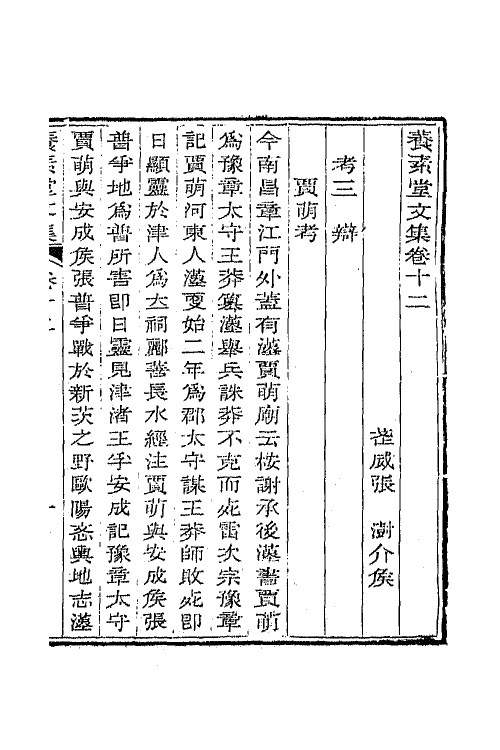 養素堂文集卷十二
武威張 澍介侯
考三 辯
賈萌考
今南昌章江門外蓋有漢賈萌廟云桉謝承後漢書賈萌
爲豫章太守王莽篡漢舉兵誅莽不克而死雷次宗豫章
記賈萌河東人漢更始二年爲郡太守謀王莽師敗死卽
日顯靈於津人爲立祠酈善長水經注賈萌與安成侯張
普爭地爲普所害卽日靈見津渚王孚安成記豫章太守
賈萌與安成侯張普爭戰於新茨之野歐陽忞輿地志漢
養素堂文集 卷十二 一